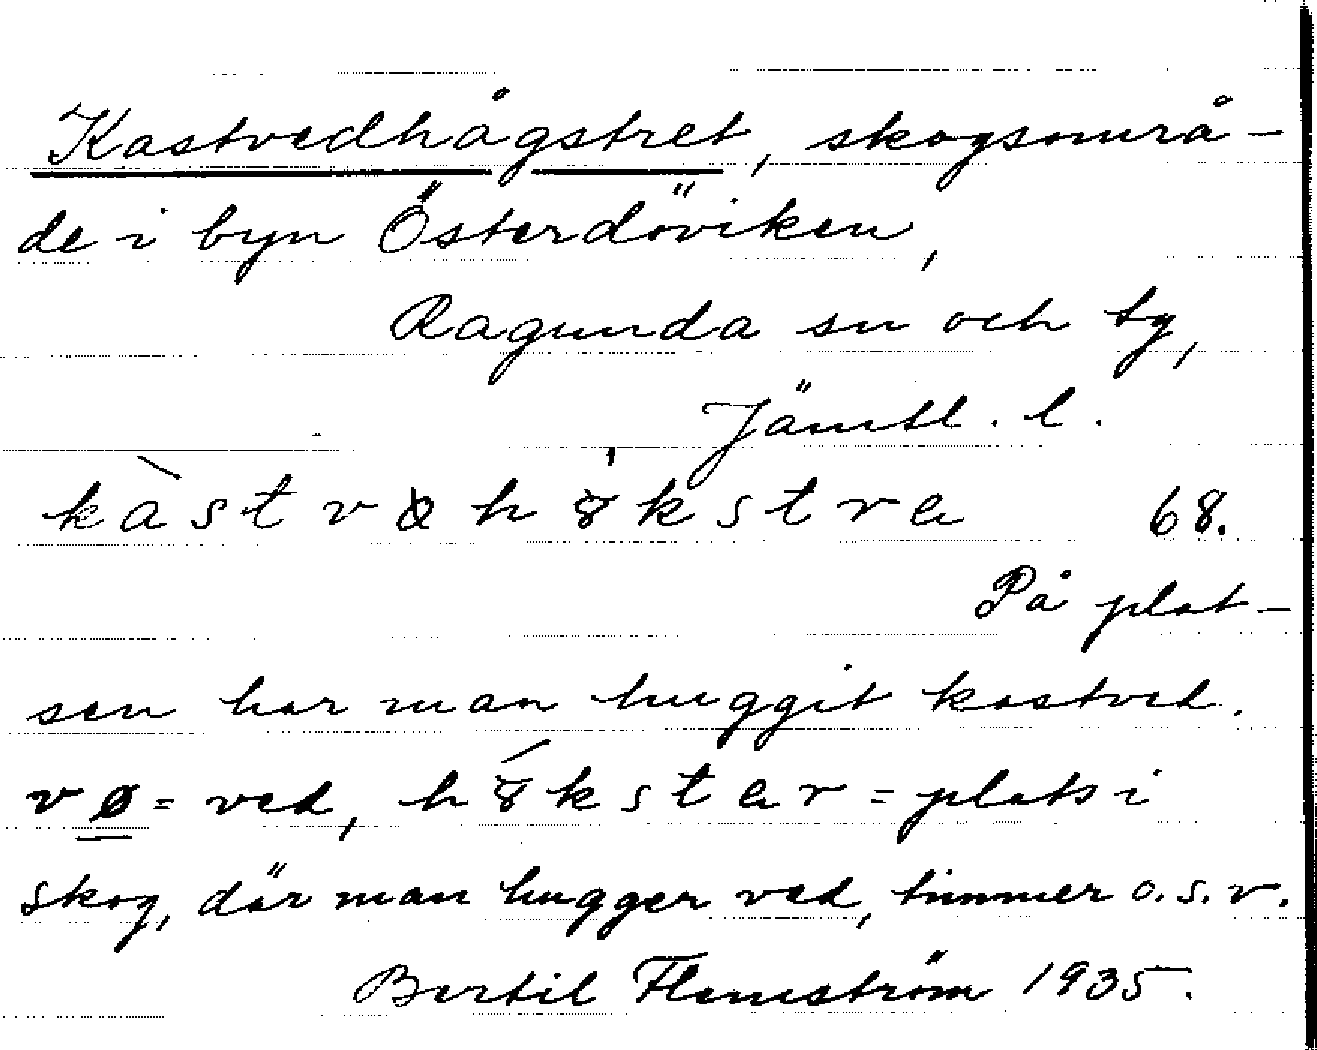 Kastvedhågstret, skogsområ-
de i byn Österdöviken,
Ragunda sn och tg,
Jämtl. l.
kàstvøh8kstra 68.
På plat-
sen har man huggit kastved.
vø = ved, h8kstar = plats i
skog, där man hugger ved, timmer o.s.v.
Bertil Flemström 1935.